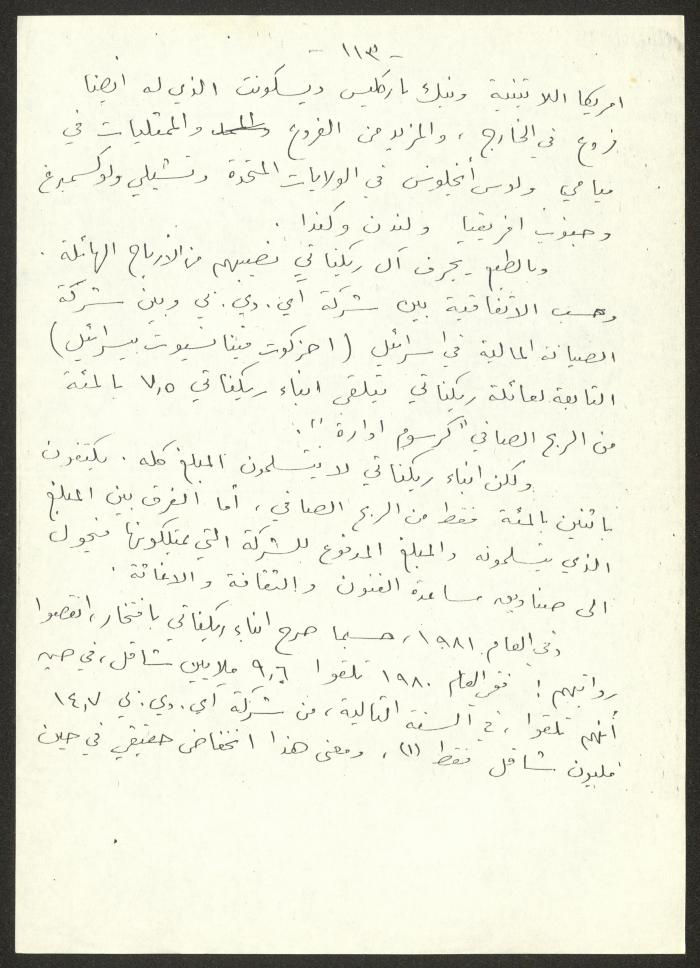 - ١١٣ -
امريكا اللاتينية وبنك باركليس ديسكونت الذي له ايضا
فروع في الخارج ، والمزيد من الفروع والممثليات في
ميامي ولوس أنجلوس في الولايات المتحدة وتشيلي ولوكسمبرغ
وجنوب افريقيا ولندن وكندا .
وبالطبع يجرف آل ريكناتي نصيبهم من الأرباح الهائلة .
وحسب الاتفاقية بين شركة أي . دي . بي وبين شركة
الصيانة المالية في اسرائيل ( احزكوت فينانسيوت بيسرائيل )
التابعة لعائلة ريكناتي يتلقى ابناء ريكناتي ٧,٥ بالمئة
من الربح الصافي " كرسوم ادارة " .
ولكن ابناء ريكناتي لا يتسلمون المبلغ كله . يكتفون
باثنين بالمئة فقط من الربح الصافي ، أما الفرق بين المبلغ
الذي يتسلمونه والمبلغ المدفوع للشركة التي يمتلكونها فيحول
الى صناديق مساعدة الفنون والثقافة والاغاثة .
وفي العام ١٩٨١ ، حسبما صرح ابناء ريكناتي بافتخار ، انقصوا
رواتبهم ! ففي العام ١٩٨٠ تلقوا ٩,٦ ملايين شاقل ، في حين
أنهم تلقوا ، في السنة التالية ، من شركة أي . دي . بي ١٤,٧
مليون شاقل فقط (١) ، ومعنى هذا انخفاض حقيقي في حين